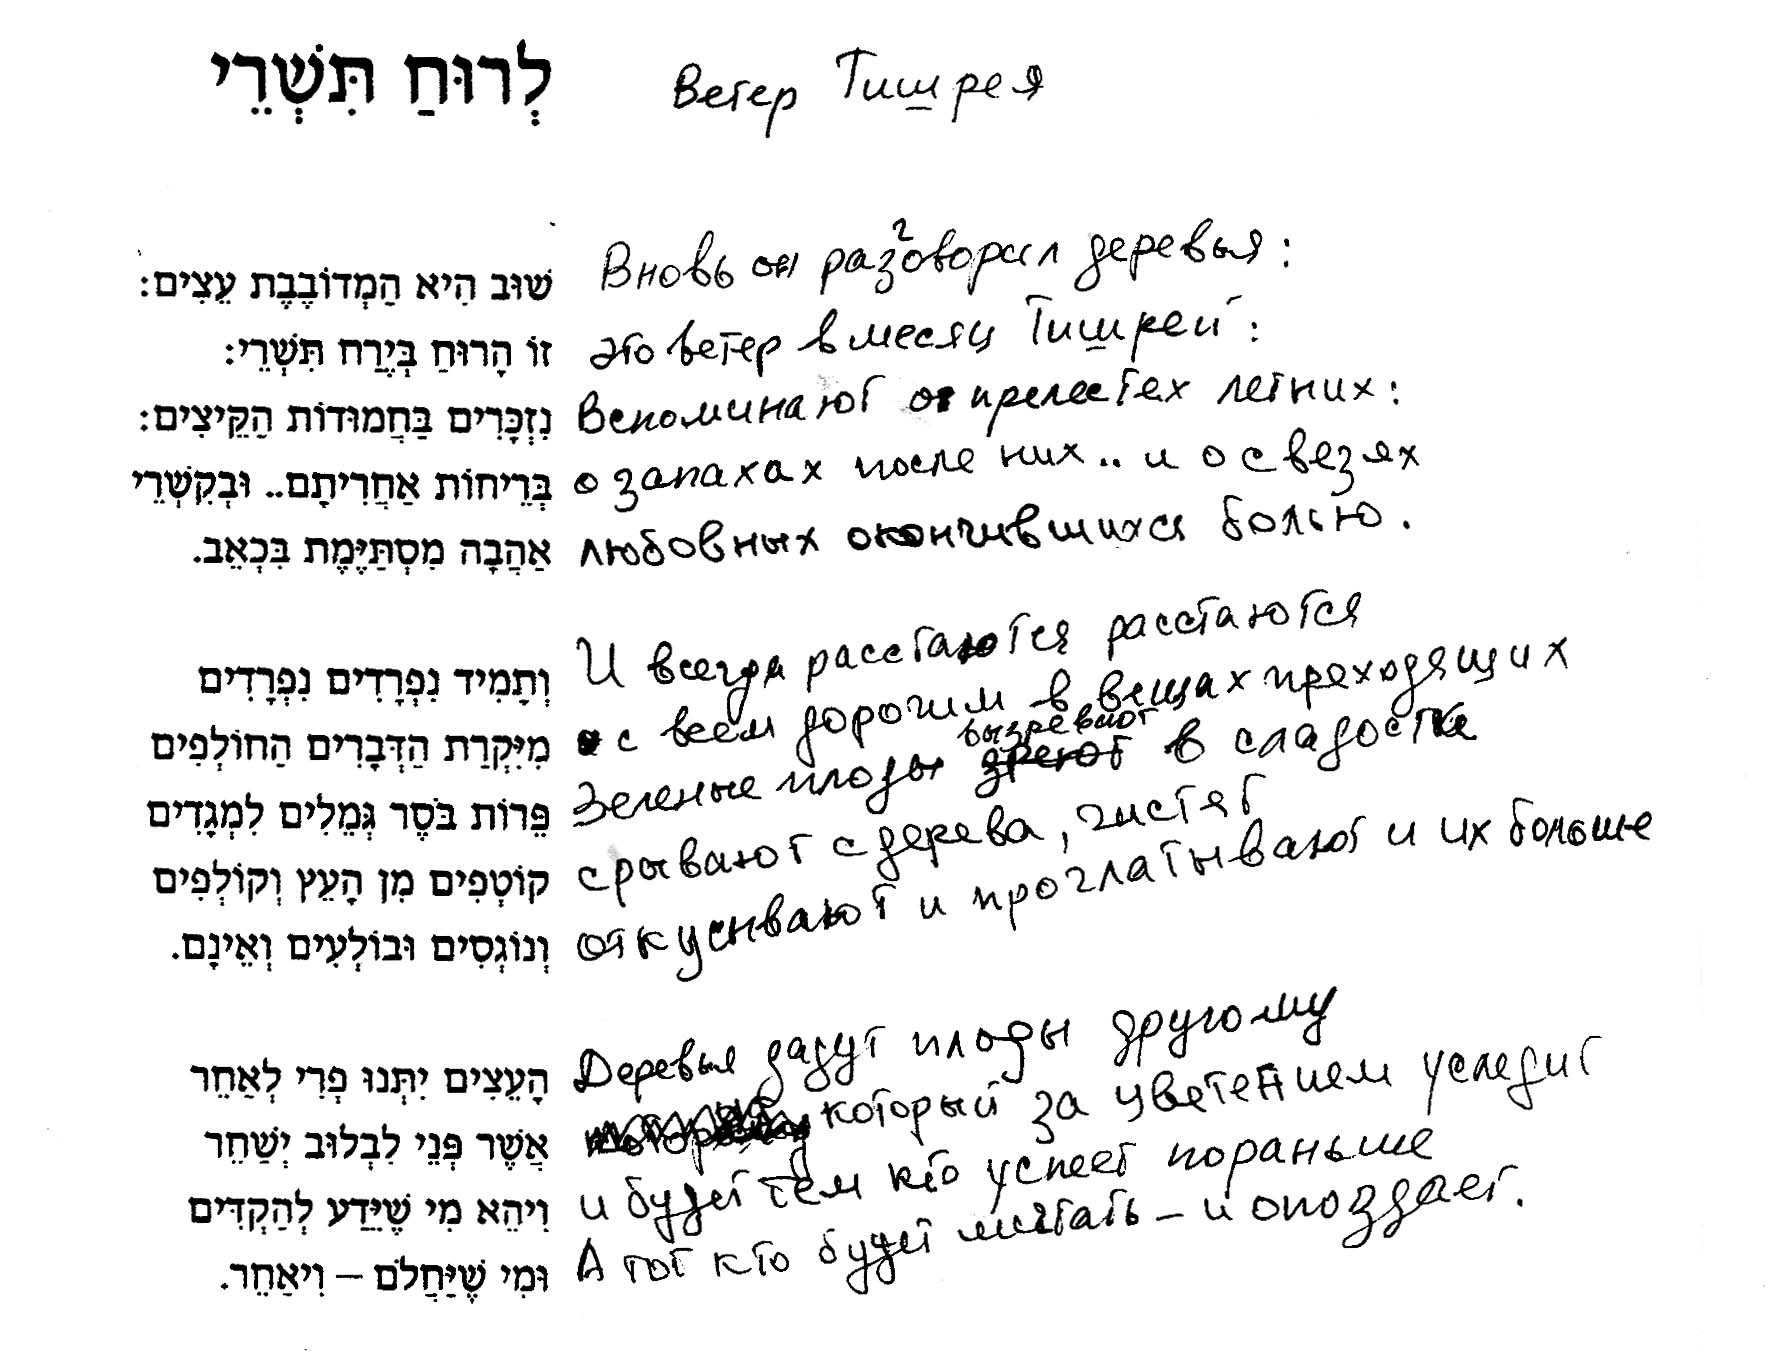 לְרוּחַ תִּשְׁרֵי Ветер Тишрея
שׁוּב הִיא הַמְדוֹבֶבֶת עֵצִים: Вновь он разговорил деревья:
זוֹ הָרוּחַ בְּיֶרַח תִּשְׁרֵי: это ветер в месяц Тишрей:
נִזְכָּרִים בַּחֲמוּדוֹת הַקֵּיצִים: Вспоминают о прелестех летних:
בְּרֵיחוֹת אַחֲרִיתָם.. וּבְקִשְׁרֵי о запахах после них.. и о свезях
אַהֲבָה מִסְתַּיֶּמֶת בִּכְאֵב. любовных окончившихся болью.
וְתָמִיד נִפְרָדִים נִפְרָדִים И всегда расстаются расстаются
מִיִּקְרַת הַדְּבָרִים הַחוֹלְפִים с всем дорогим в вещах преходящих
פֵּרוֹת בֹּסֶר גְּמֵלִים לִמְגָדִים Зеленые плоды вызревают в сладостке
קוֹטְפִים מִן הָעֵץ וְקוֹלְפִים срывают с дерева, чистят
וְנוֹגְסִים וּבוֹלְעִים וְאֵינָם. откусывают и проглатывают и их больше
הָעֵצִים יִתְּנוּ פְּרִי לְאַחֵר Деревья дадут плоды другому
אֲשֶׁר פְּנֵי לִבְלוּב יְשַׁחֵר который за цветением уследит
וִיהֵא מִי שֶׁיֵּדַע לְהַקְדִּים и будет тем кто успеет пораньше
וּמִי שֶׁיַּחֲלֹם – וִיאַחֵר. А тот кто будет мечтать – и опоздает.